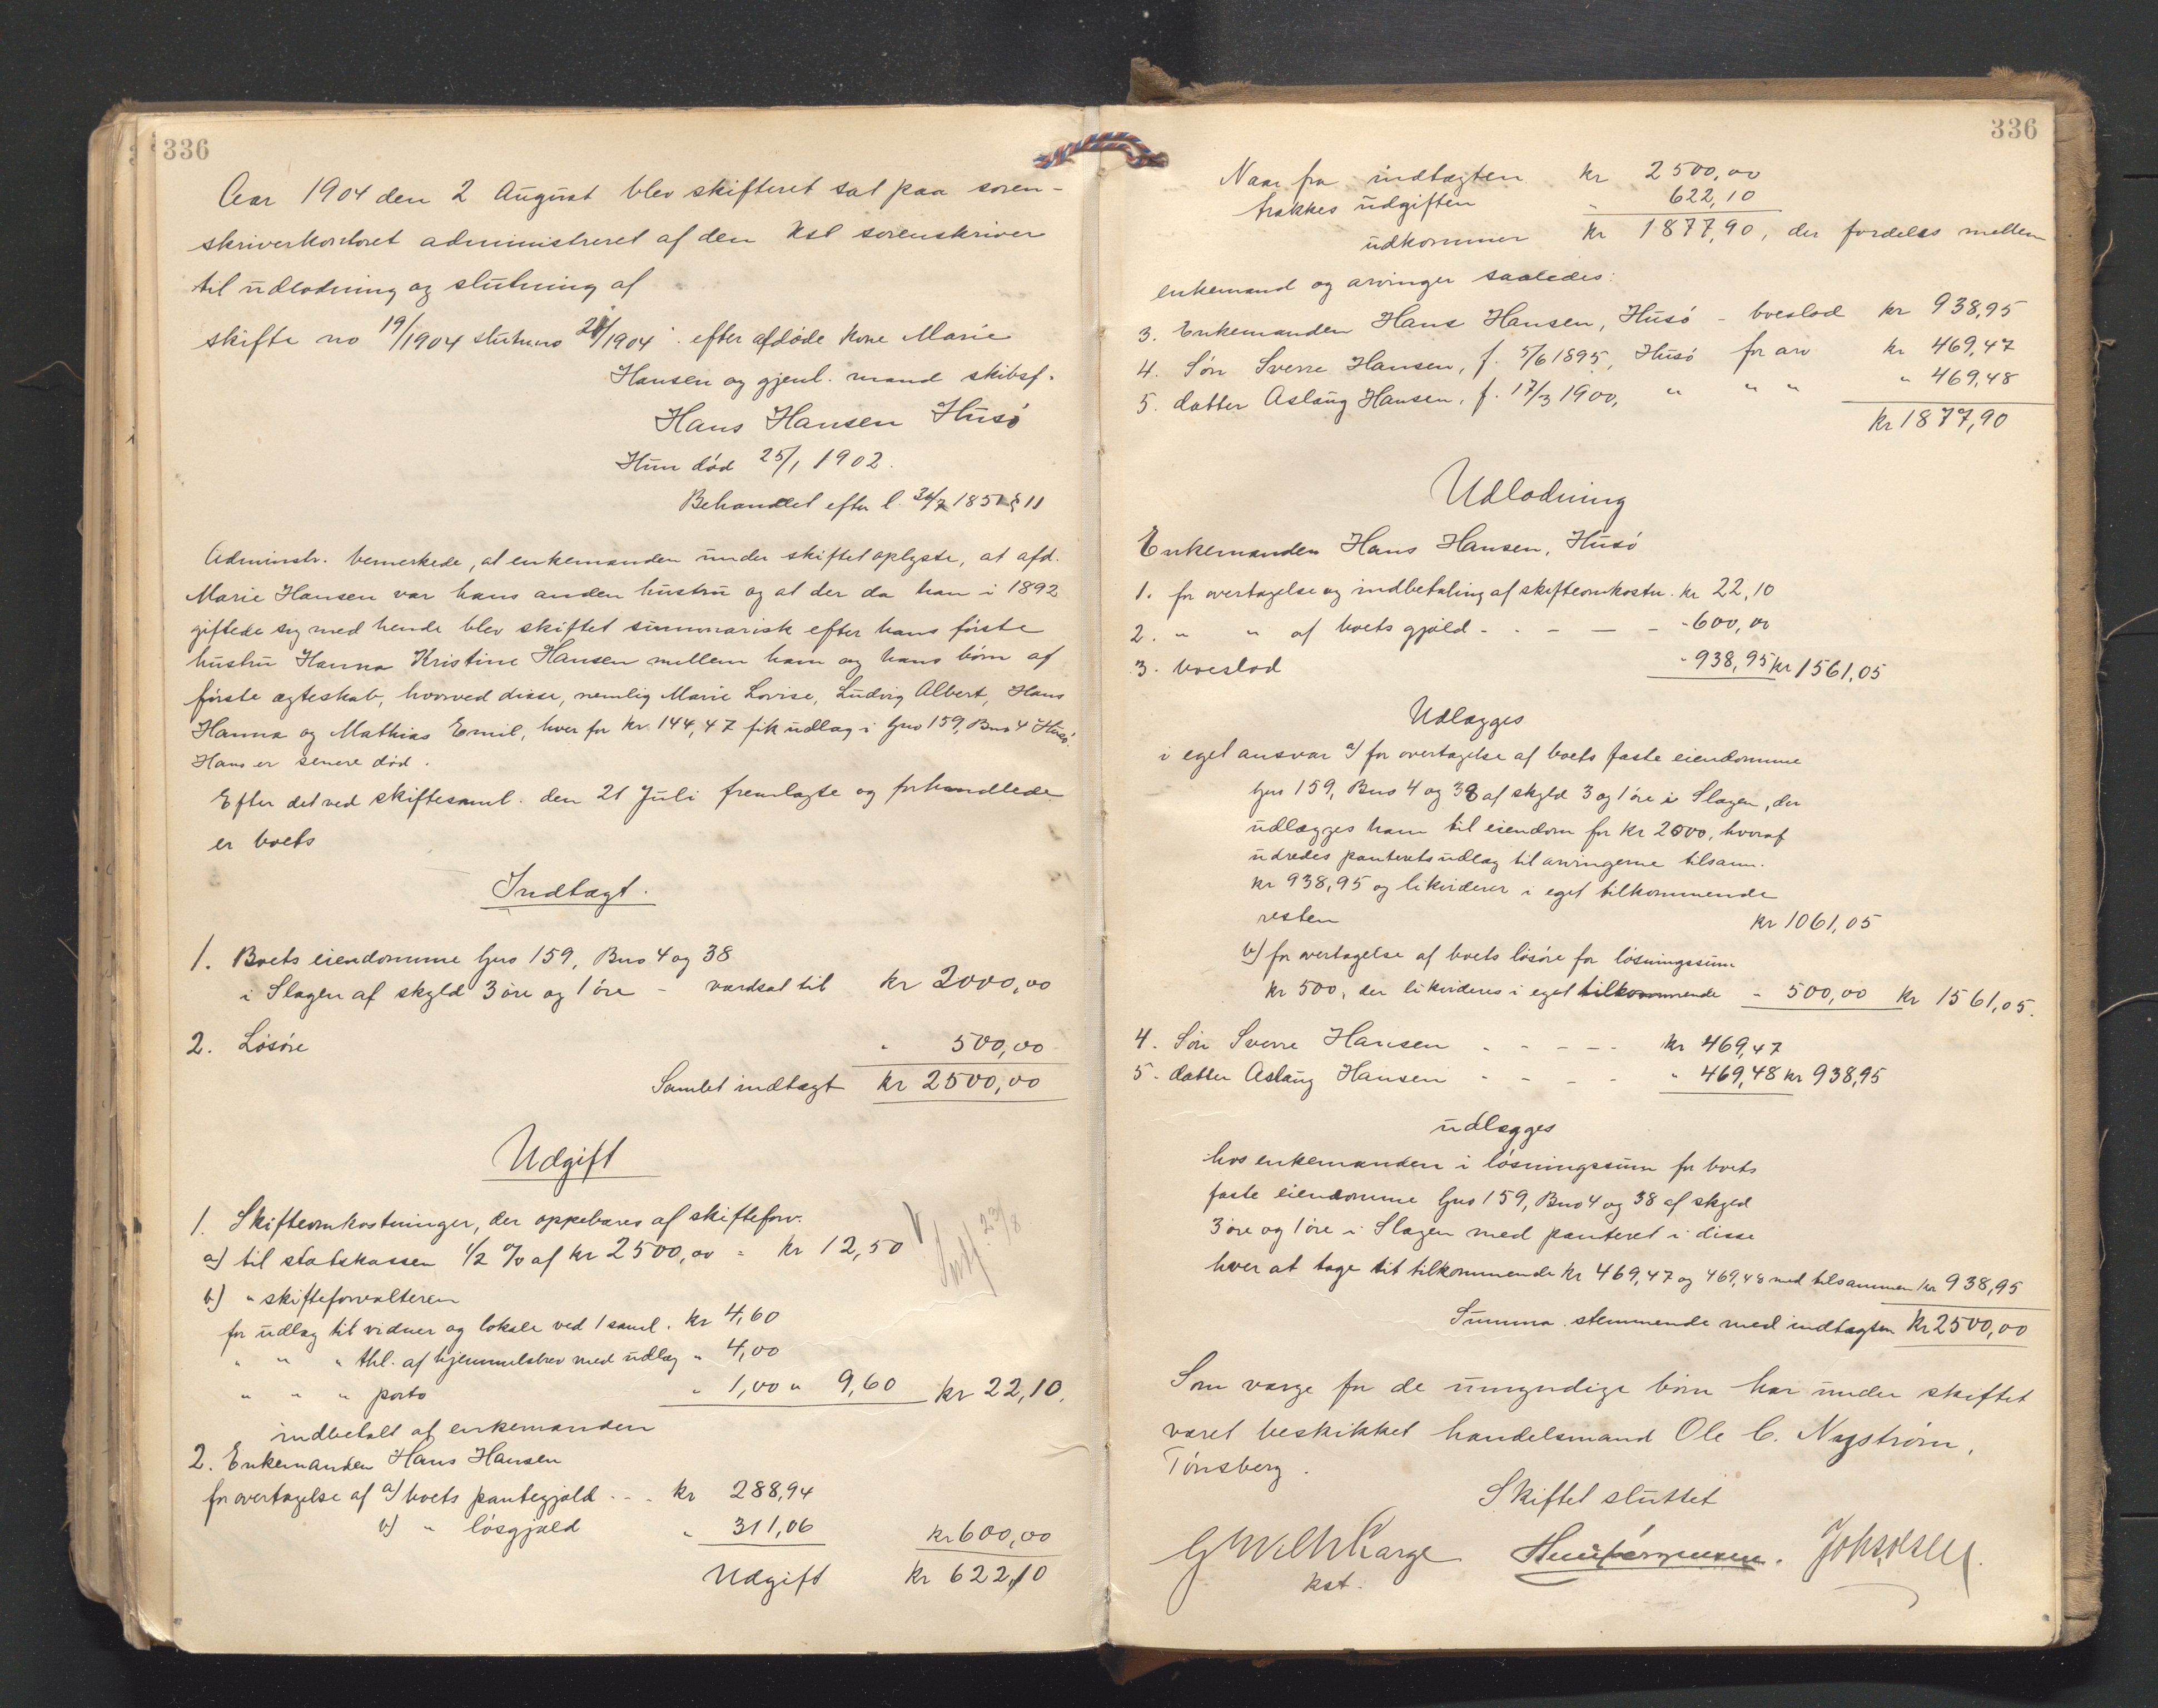 336
Aar 1904 den 2 August blev skifteret sat paa soren-
skriverkontoret administreret af den kst sorenskriver
til udlodning og slutning af
skifte no 19/1904 slutn.no 21/1904 : efter afdøde kone Marie
Hansen og gjenl. mand skibsf.
Hans Hansen Husö
Hun död 25/1 1902.
Behandlet efter l. 1851 § 11
Administr. bemerkede, at enkemanden under skiftet oplyste, at afd.
Marie Hansen var hans anden hustru og at der da han i 1892
giftede sig med hende blev skiftet summarisk efter hans förste
hustru Hanna Kristine Hansen mellem ham og hans börn af
förste ægteskab, hvorved disse, nemlig Marie Lovise, Ludvig Albert, Hans
Hanna og Mathias Emil, hver for kr. 144,47 fik udlæg i Gno 159, Bno 4 Husö.
Hans er senere död.
Efter det ved skiftesaml. den 21 Juli fremlagte og forhandlede
er boets
Indtægt.
1. Boets eiendomme Gno 159, Bno 4 og 38
i Slagen af skyld 3 öre og 1 öre - værdsat til kr 2000,00
2. Lösöre " 500,00
Samlet indtægt kr 2500,00
Udgift
1. Skifteomkostninger, der oppebæres af skifteforv.
a) til statskassen 1/2 % af kr 2500,00 = kr 12,50
23/8
b) " skifteforvalteren
for udlæg til vidner og lokale ved 1 saml. kr 4,60
" " " thl. af hjemmelsbrev med udlæg " 4,00
" " " porto " 1,00 " 9,60 kr 22,10.
indbetalt af enkemanden
2. Enkemanden Hans Hansen
for overtagelse af a) boets pantegjæld - - - kr 288,94
b) " lösgjæld " 311,06 kr 600,00
Udgift kr 622,10
336
Naar fra indtægten kr 2500,00
trækkes udgiften " 622,10
udkommer kr 1877,90, der fordeles mellem
enkemand og arvinger saaledes:
3. Enkemanden Hans Hansen, Husö - boeslod kr 938,95
4. Sön Sverre Hansen, f. 5/6 1895, Husö for arv kr 469,47
5. datter Aslaug Hansen, f. 17/3 1900, " " " " 469,48
kr 1877,90
Udlodning
Enkemanden Hans Hansen, Husö
1. for overtagelse og indbetaling af skifteomkostn. kr 22,10
2. " " af boets gjæld - - - - - " 600,00
3. boeslod " 938,95 kr 1561,05
Udlægges
i eget ansvar a) for overtagelse af boets faste eiendomme
Gno 159, Bno 4 og 38 af skyld 3 og 1 öre i Slagen, der
udlægges ham til eiendom for kr 2000, hvoraf
udredes panteretsudlæg til arvingerne tilsam.
kr 938,95 og likviderer i eget tilkommende
resten kr 1061,05
b) for overtagelse af boets lösöre for lösningssum
kr 500, der likvideres i eget tilkommende " 500,00 kr 1561,05.
4. Sön Sverre Hansen - - - - - kr 469,47
5. datter Aslaug Hansen - - - - " 469,48 kr 938,95
udlægges
hos enkemanden i lösningssum for boets
faste eiendomme Gno 159, Bno 4 og 38 af skyld
3 öre og 1 öre i Slagen med panteret i disse
hver at tage sit tilkommende kr 469,47 og 469,48 med tilsammen kr 938,95
Summa stemmende med indtægten kr 2500,00
Som værge for de umyndige börn har under skiftet
været beskikket handelsmand Ole C. Nygström,
Tönsberg.
Skiftet sluttet
kst.